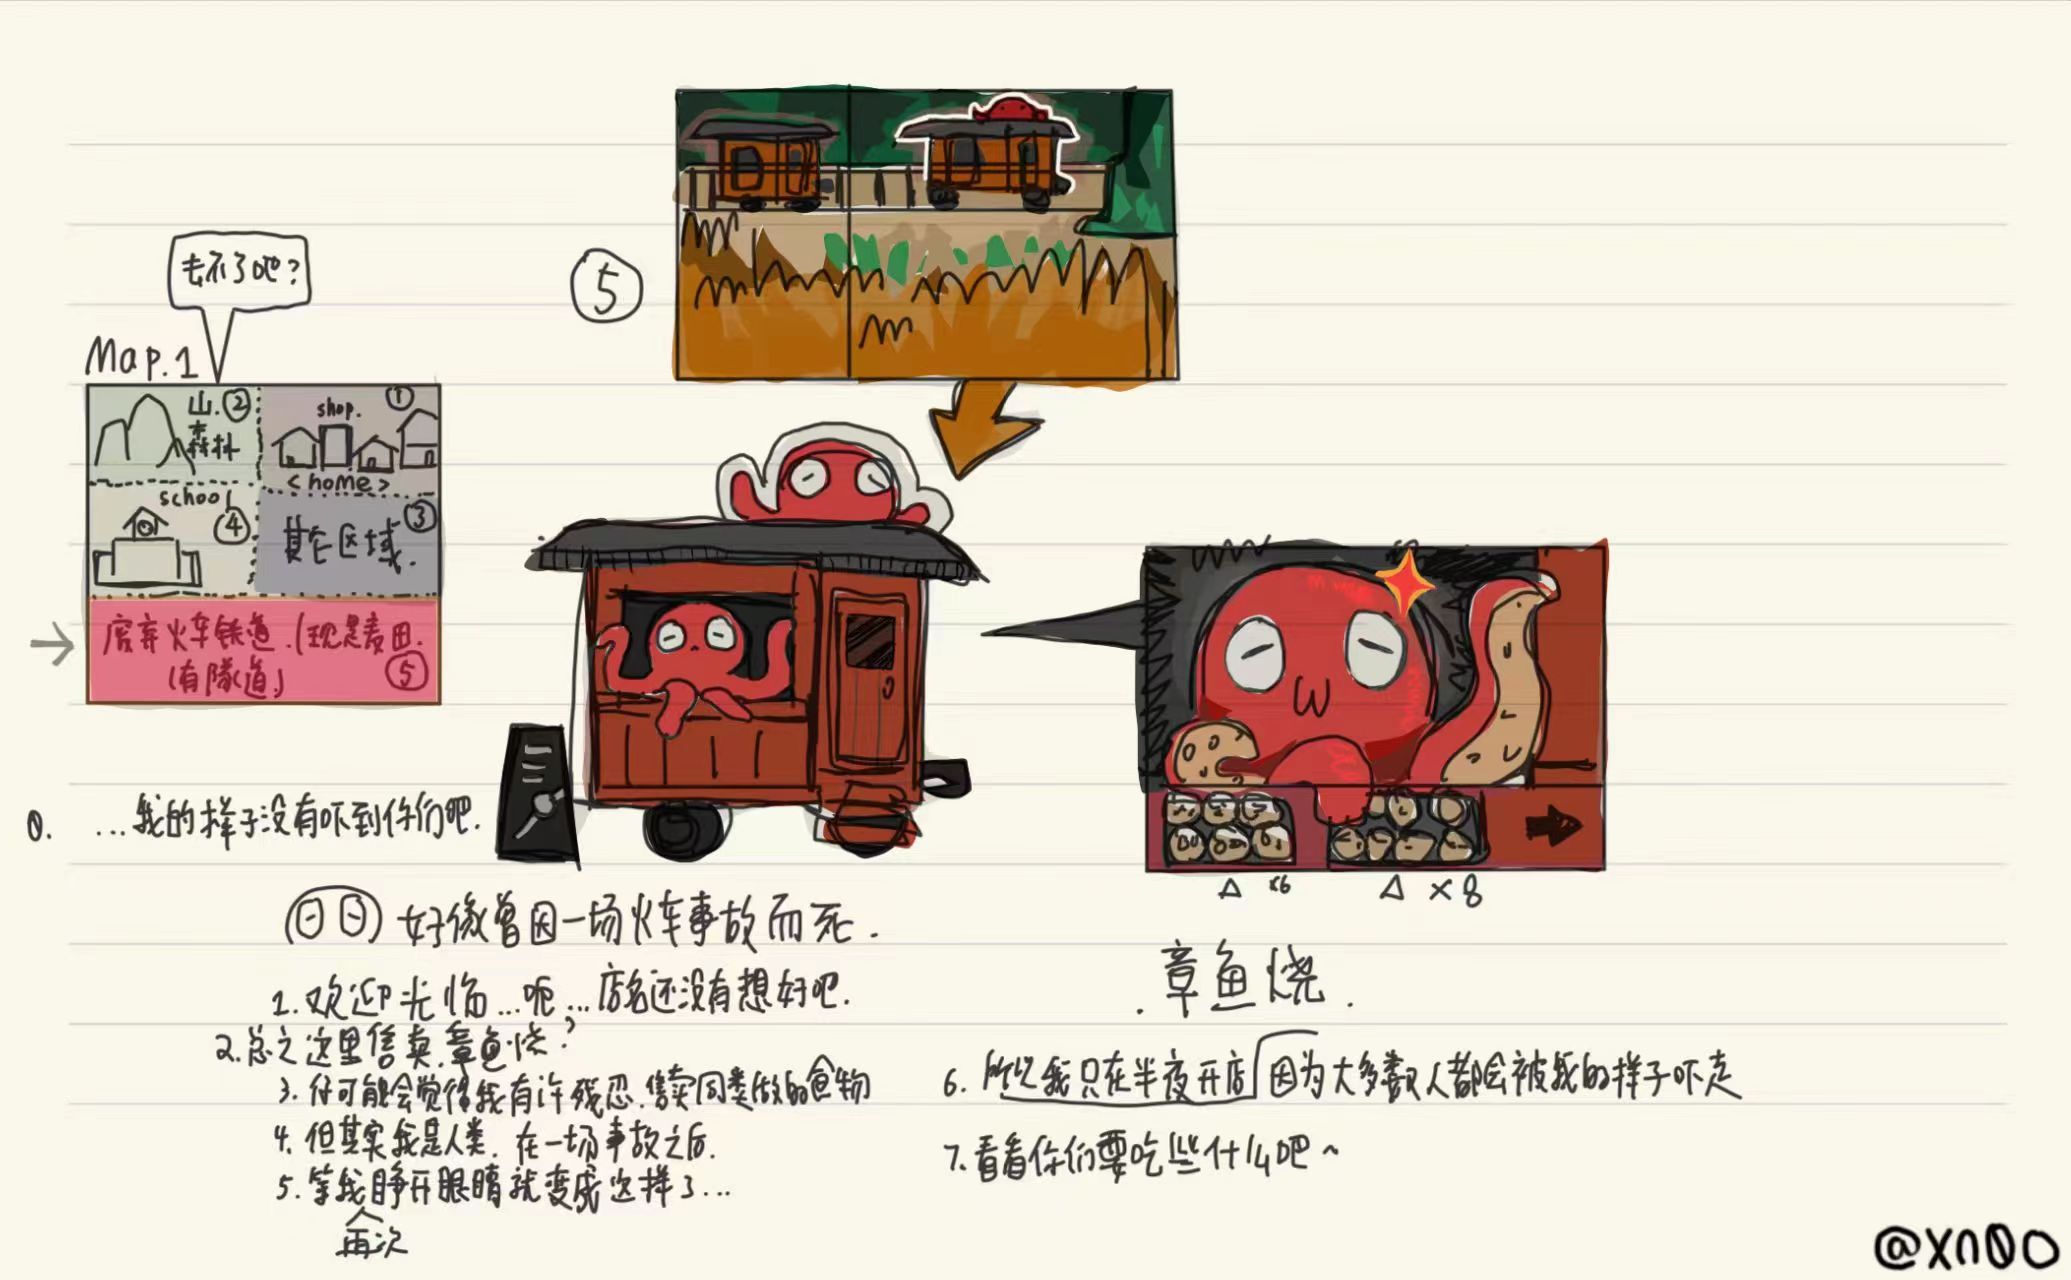 去不了吧?
Map.1
山.②
森林
shop. ①
<home>
school
④
其它区域. ③
废弃火车铁道.(现是麦田.
(有隧道) ⑤
⑤
0. ...我的样子没有吓到你们吧.
好像曾因一场火车事故而死.
1.欢迎光临...呃...店名还没有想好吧.
2.总之这里售卖.章鱼烧?
3.你可能会觉得我有许残忍.售卖同类做的食物
4.但其实我是人类.在一场事故之后.
5.等我睁开眼睛就变成这样了...
再次
△ x6
△ x8
.章鱼烧.
6.所以我只在半夜开店 因为大多数人都会被我的样子吓走
7.看看你们要吃些什么吧~
@xn00